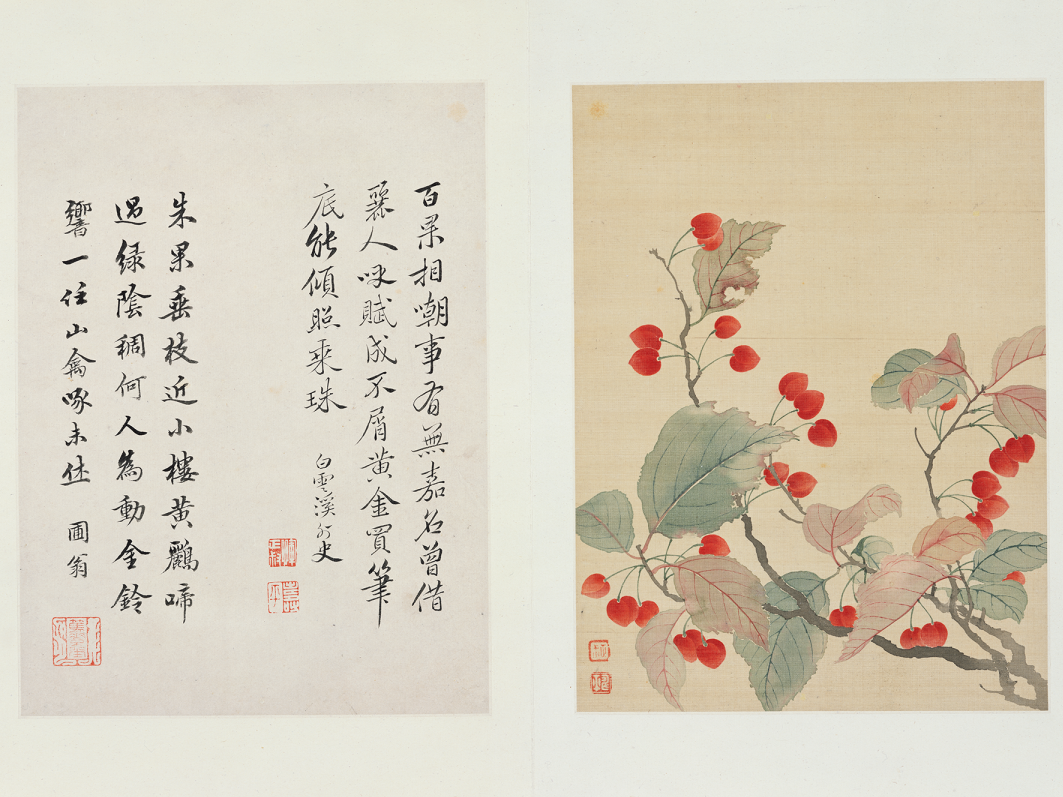 百果相嘲事有無嘉名曾借
麗人呼賦成不屑黄金買筆
底能傾照乘珠
白雲溪外史
朱果垂枝近小樓黄鸝啼
過緑陰稠何人為動金鈴
響一任山禽啄未休
圃翁